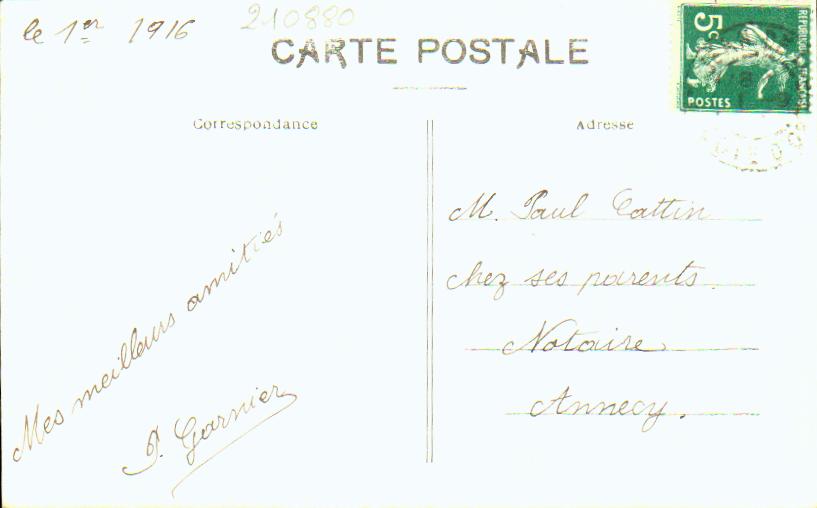 le 1er 1916
210880
CARTE POSTALE
5c
REPUBLIQUE FRANÇAISE
POSTES
Correspondance
Adresse
M. Paul Cattin
chez ses parents.
Notaire
Annecy.
Mes meilleurs amitiés
P. Garnier